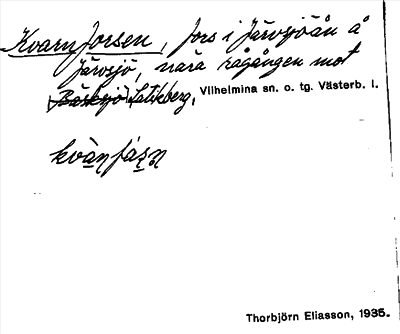 Kvarnforsen, fors i Järvsjöån å
Järvsjö, nära rågången mot
Bäsksjö, Latikberg, Vilhelmina sn. o. tg. Västerb. l.
Thorbjörn Eliasson, 1935.